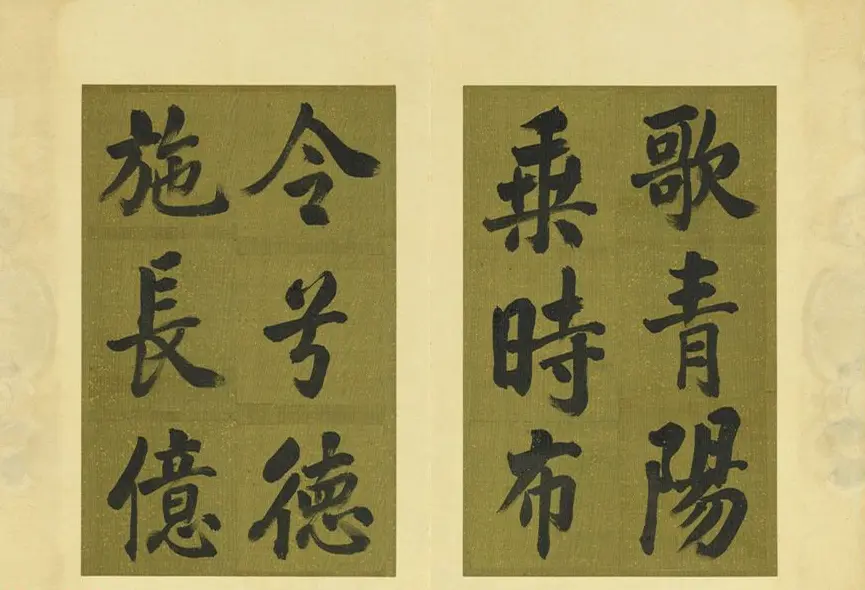 歌青陽
乗時布
令兮德
施長億